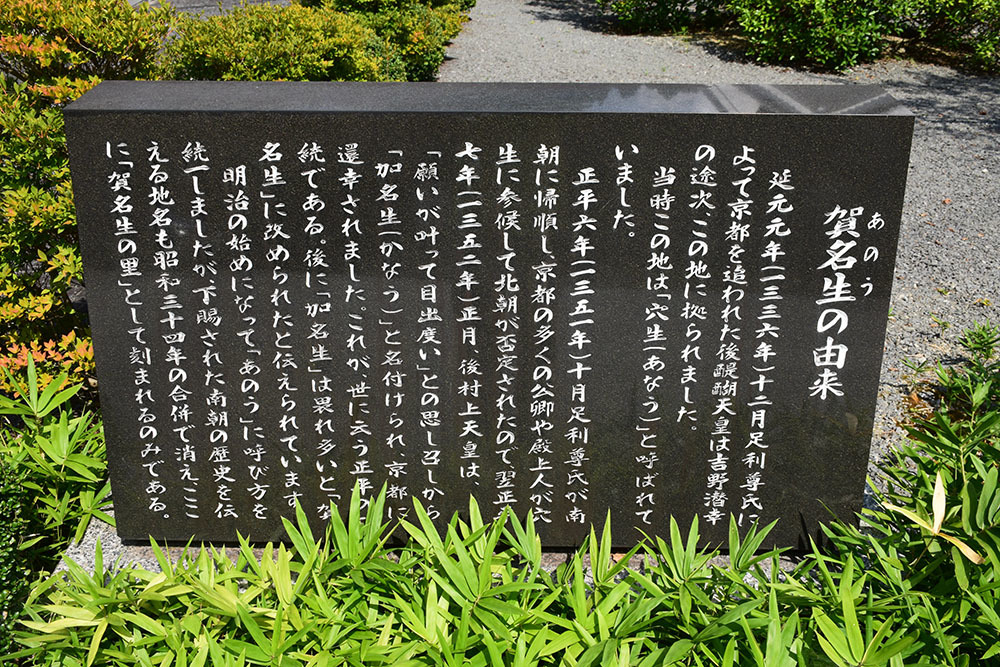 賀名生の由来
あのう
延元元年(一三三六年)十二月足利尊氏に
よって京都を追われた後醍醐天皇は吉野潜幸
の途次、この地に拠られました。
当時この地は「穴生(あなう)」と呼ばれて
いました。
正平六年(一三五一年)十月足利尊氏が南
朝に帰順し、京都の多くの公卿や殿上人が穴
生に参候して北朝が否定されたので翌正平
七年(一三五二年)正月、後村上天皇は、
「願いが叶って目出度い」との思し召しから
「加名生(かなう)」と名付けられ、京都に
還幸されました。これが世に云う正平
統である。後に「加名生」は畏れ多いと「
名生」に改められたと伝えられています
明治の始めになって「あのう」に呼び方を
統一しましたが、下賜された南朝の歴史を伝
える地名も昭和三十四年の合併で消え、ここ
に「賀名生の里」として刻まれるのみである。